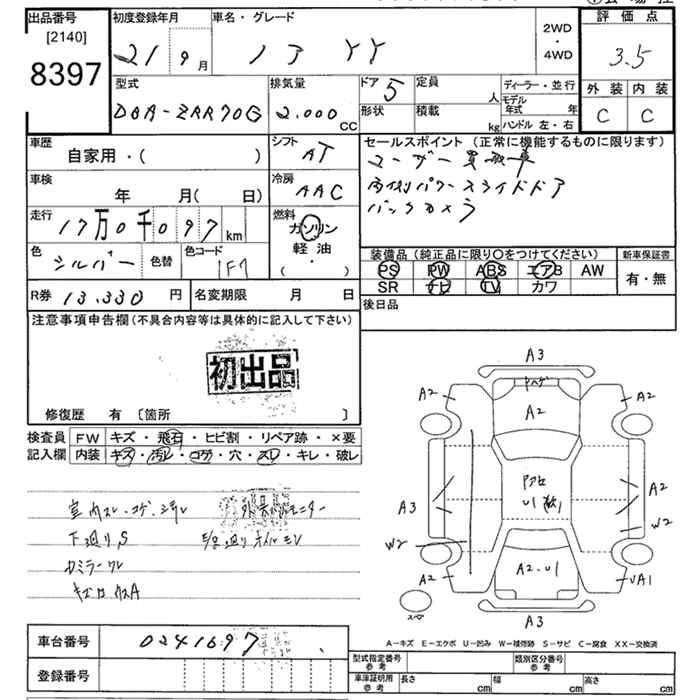 出品番号 初度登録年月 車名・グレード 評価点
[2140]
8397
21 9月 ノア YY 2WD・4WD 3.5
型式 排気量 ドア 定員 ディーラー・並行 外装 内装
5 人 モデル年式 年
DBA-ZRR70G 2.000 CC 形状 積載 kg ハンドル 左・右 C C
車歴 シフト セールスポイント (正常に機能するものに限ります)
自家用・( ) AT ユーザー買取車
車検 冷房 両側パワースライドドア
年 月( 日) AAC バックカメラ
走行 燃料
17万0千097 km ガソリン
軽油
( ・ )
色 シルバー 色替 色コード 1F7
装備品 (純正品に限り〇をつけてください) 新車保証書
PS PW ABS エアB AW 有・無
SR ナビ TV カワ
R券 13.330 円 名変期限 月 日 後日品
注意事項申告欄 (不具合内容等は具体的に記入して下さい)
初出品
修復歴 有 [箇所 ]
検査員 FW キズ・飛石・ヒビ割・リペア跡・×要
記入欄 内装 キズ・汚レ・コゲ・穴・スレ・キレ・破レ
室内スレ・コゲ・汚レ
下廻りS
A3
A2 A2
A2
A3 A2
W2 W2
A2 A2・U1 UA1
A3
車台番号 0241697
登録番号
A－キズ E－エクボ U－凹み W－補修跡 S－サビ C－腐食 XX－交換済
型式指定番号 参考 類別区分番号 参考
車庫証明用 参考 長さ cm 幅 cm 高さ cm